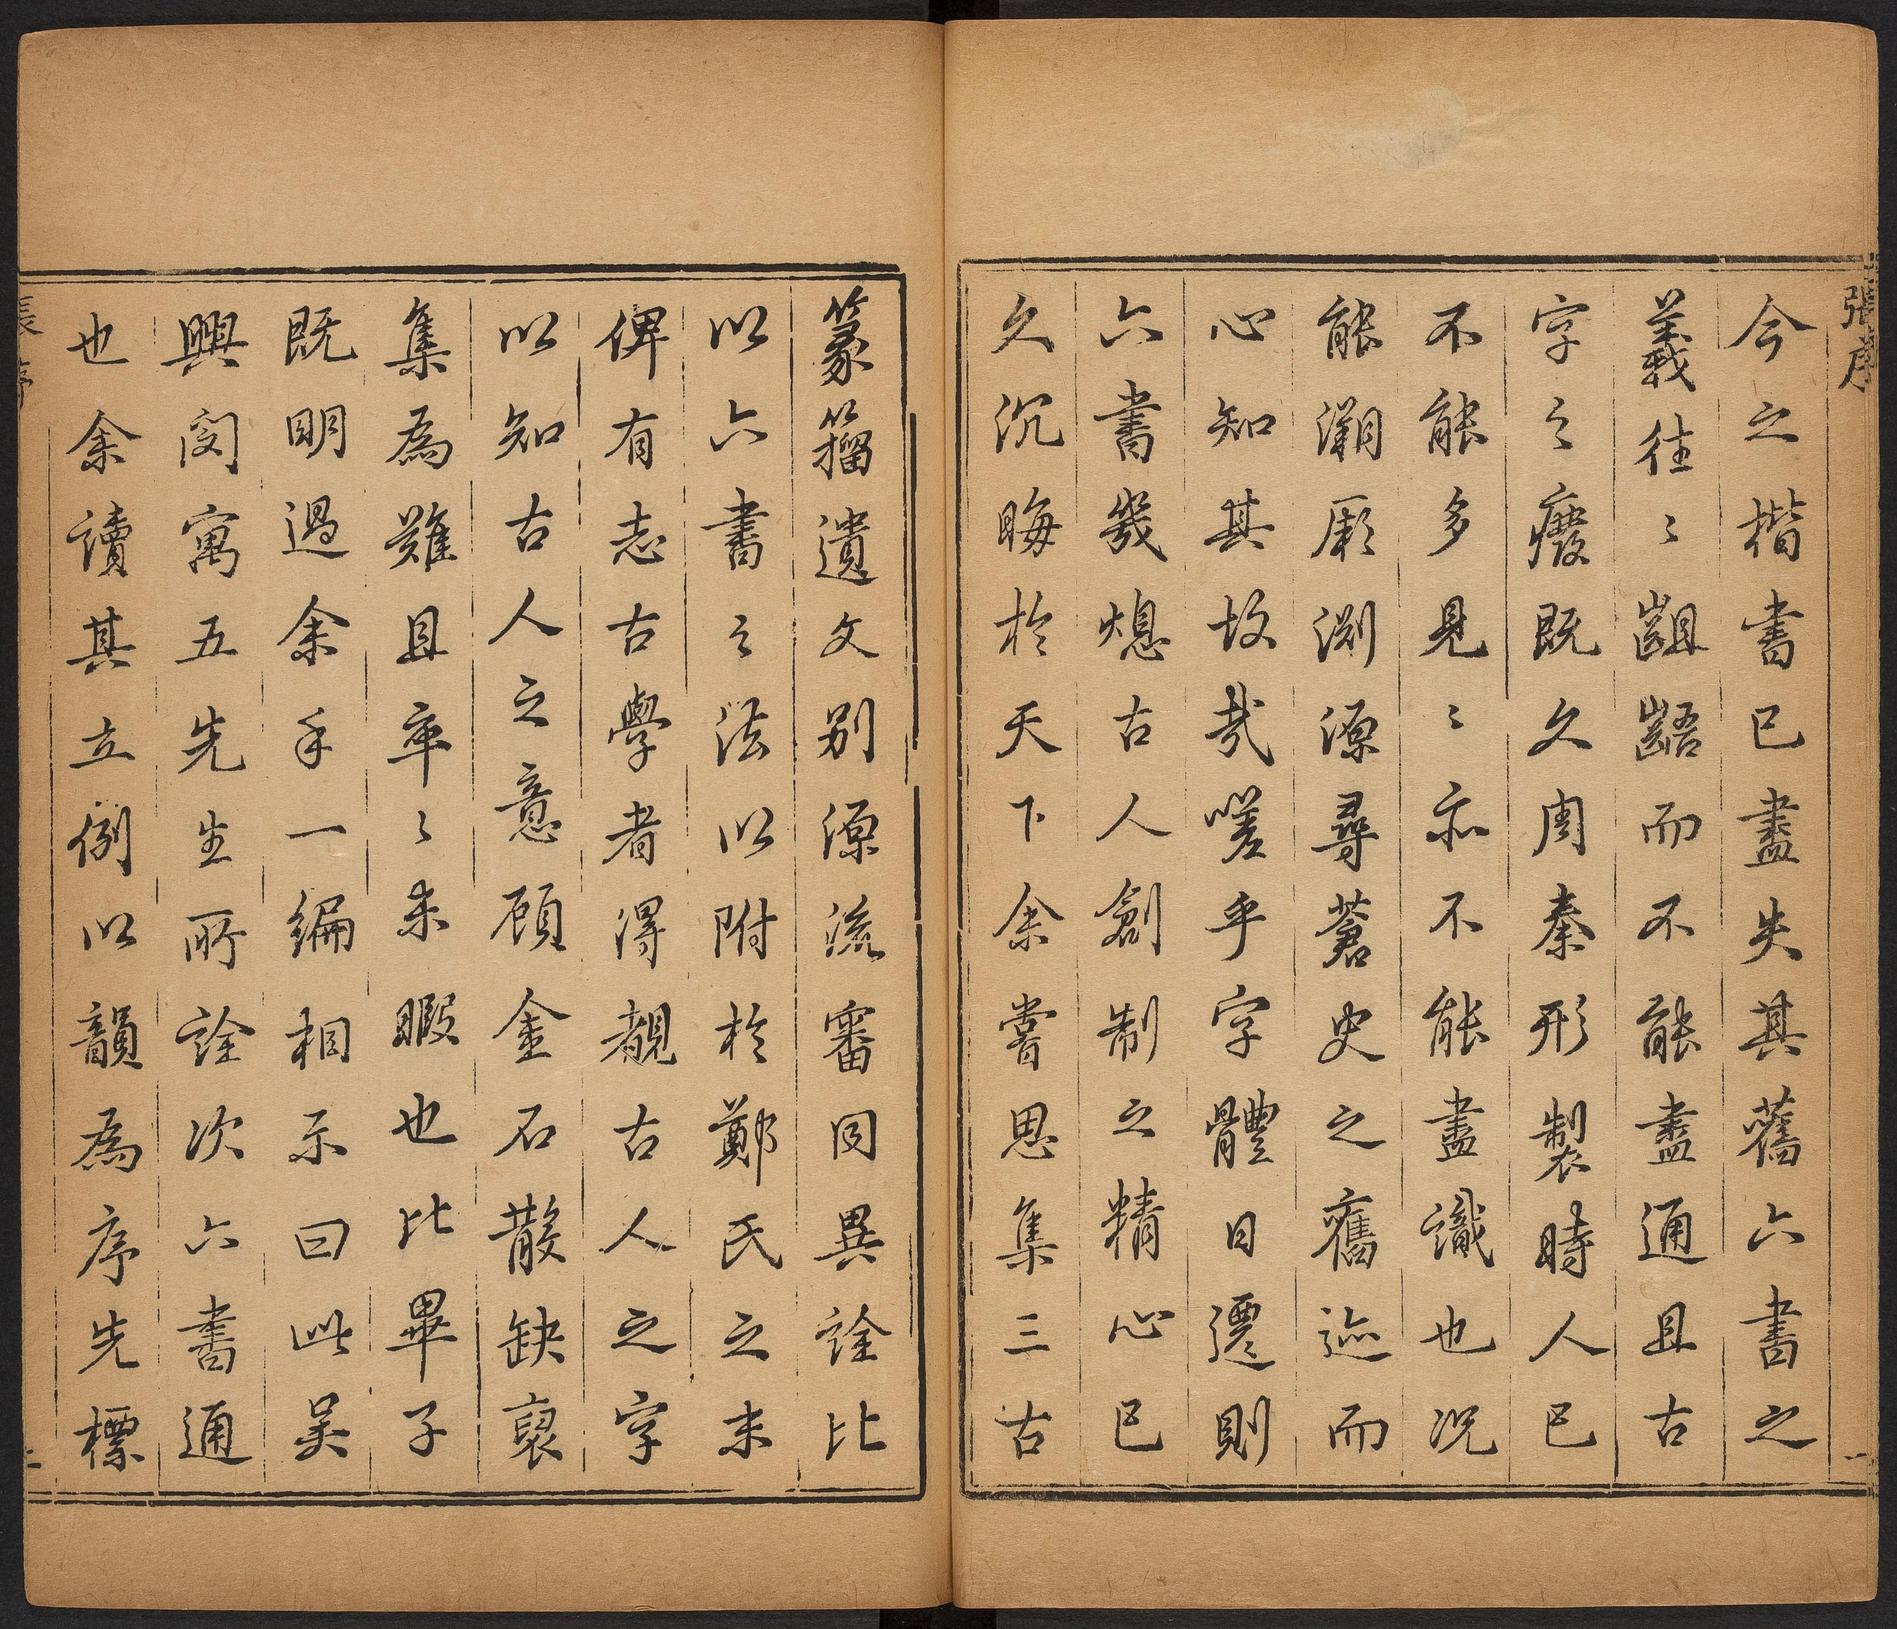 張序
一
今之楷書已盡失其舊六書之
義往〻齟齬而不能盡通且古
字之癈既久周秦形製時人已
不能多見〻亦不能盡識也况
能溯厥渊源尋蒼史之舊迹而
心知其故哉嗟乎字體日遷則
六書幾熄古人創制之精心已
久沉晦於天下余嘗思集三古
篆籀遺文别源流審同異詮比
以六書之法以附於鄭氏之末
俾有志古學者得覩古人之字
以知古人之意顧金石散缺裒
集為難且卒〻未暇也比畢子
既明過余手一編相示曰此吴
興閔寓五先生所詮次六書通
也余讀其立例以韻為序先標
張序
二